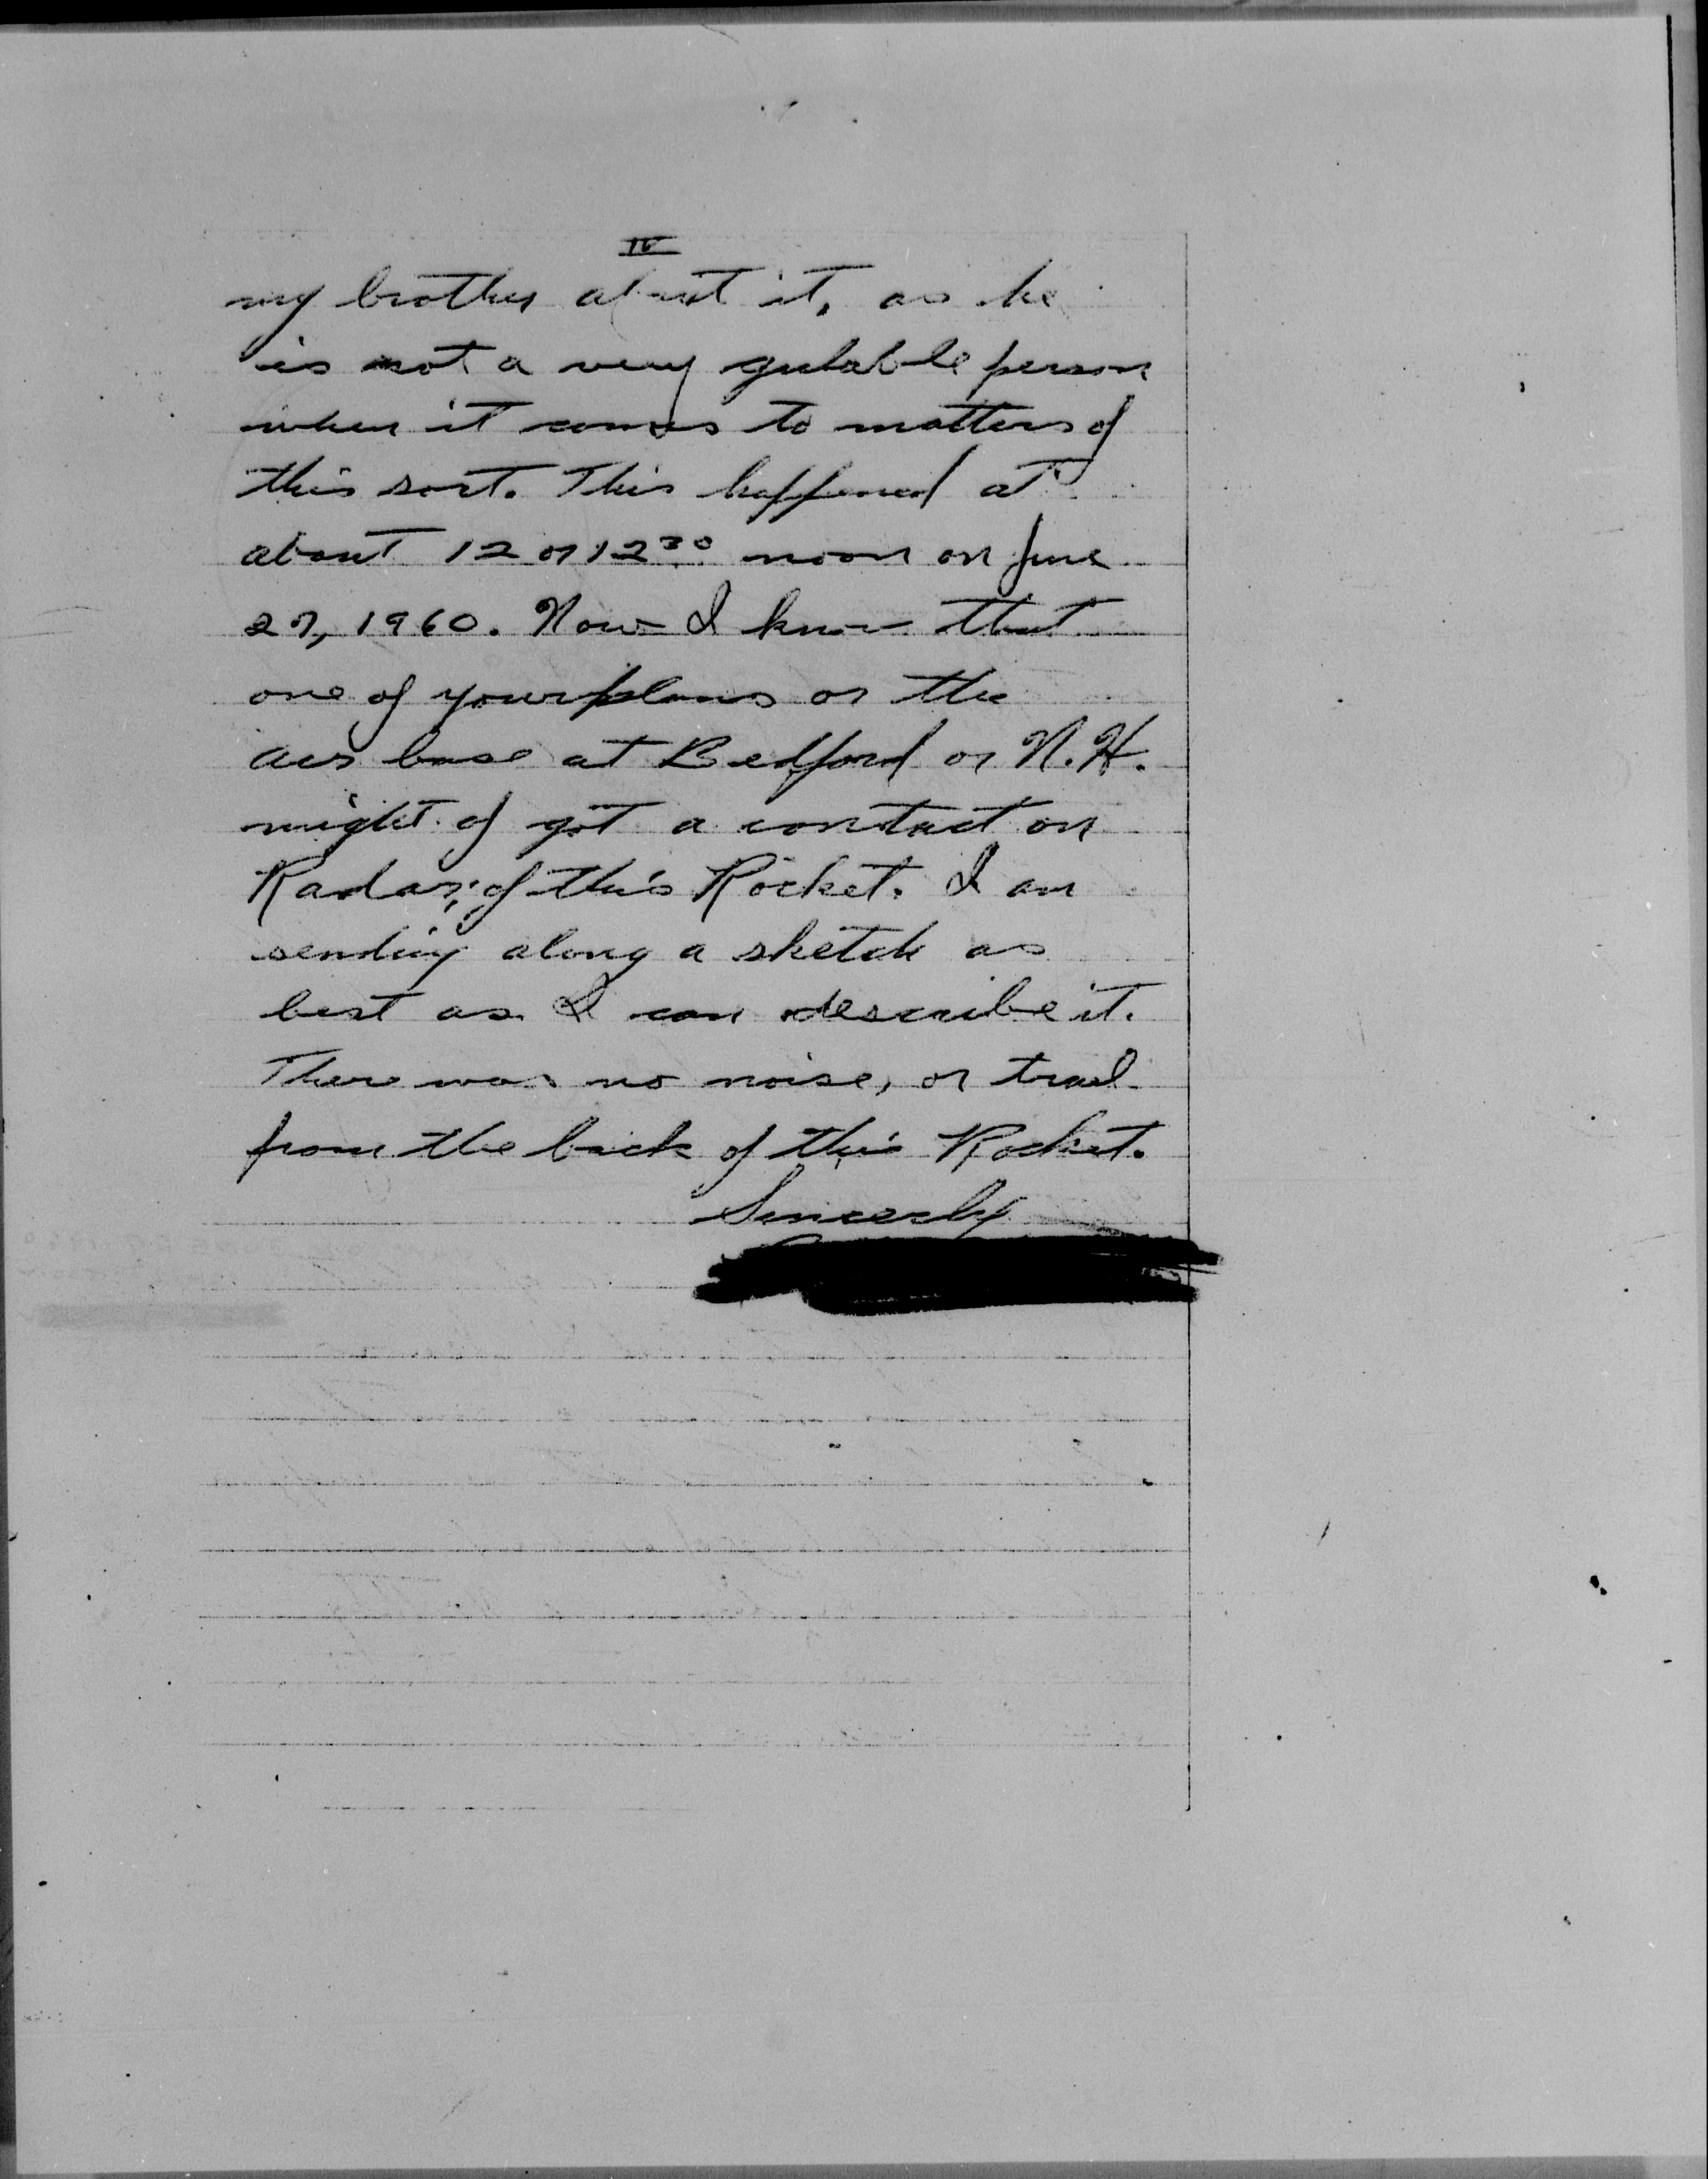 IV
my brother about it, as he
is not a very gulable person
when it comes to matters of
this sort. This happened at
about 12 or 12³⁰ noon on June
27, 1960. Now I know that
one of your planes or the
air base at Bedford or N.H.
might of got a contact on
Radar, of this Rocket. I am
sending along a sketch as
best as I can describe it.
There was no noise, or trail
from the back of this Rocket.
Sincerly